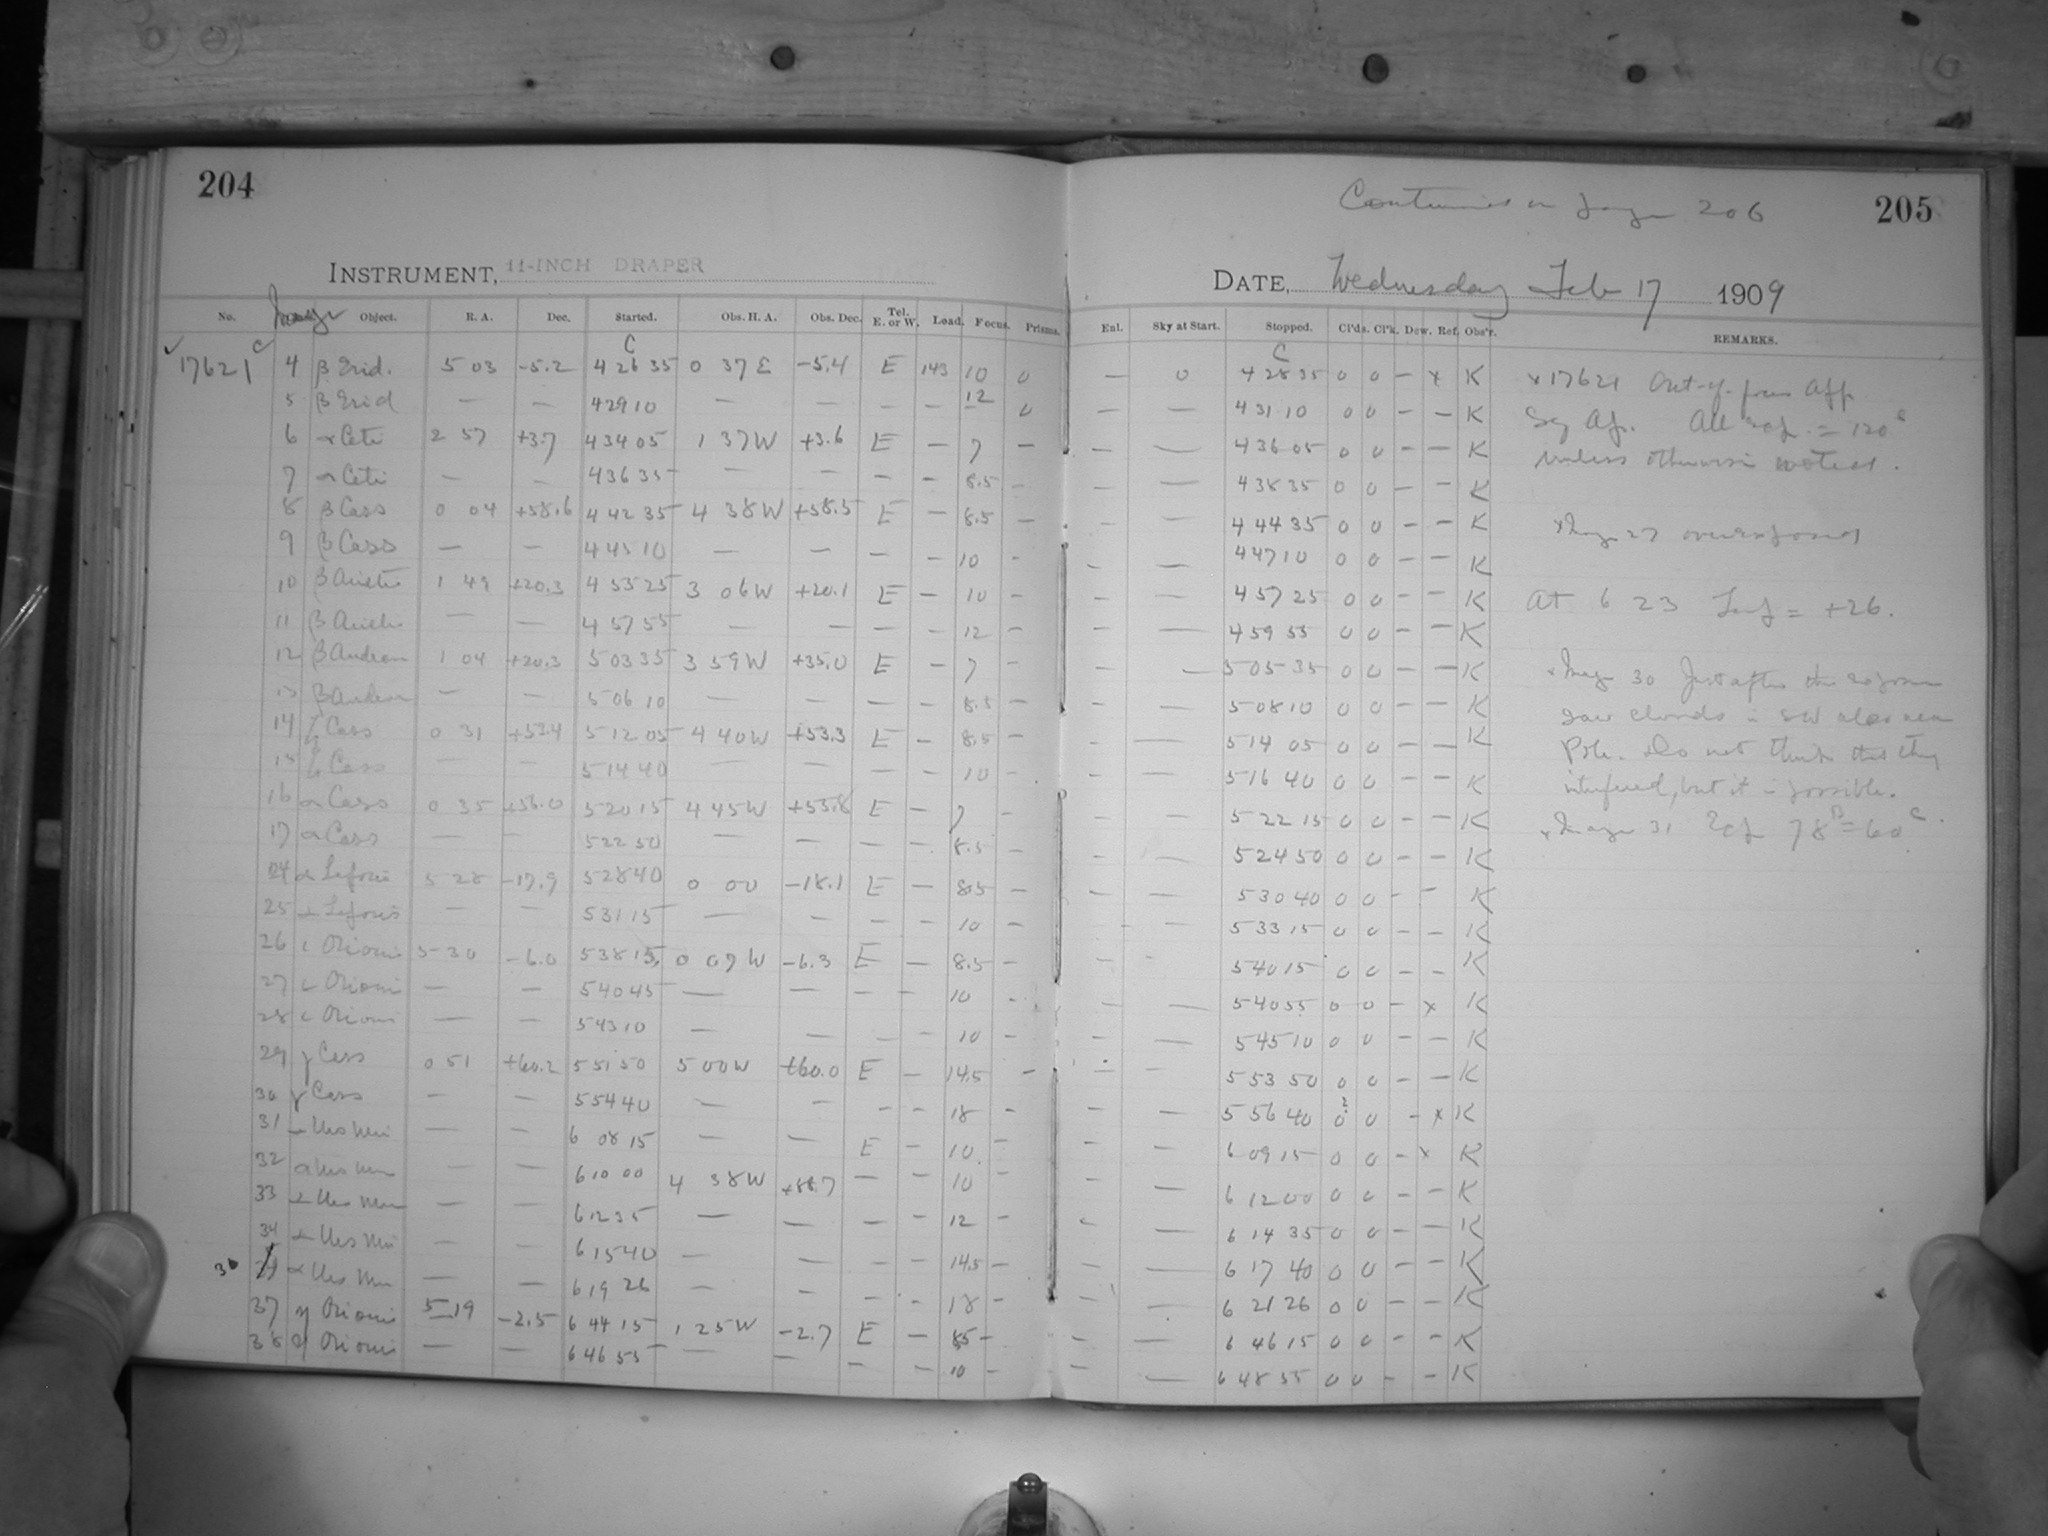 204
Continued on page 206
205
INSTRUMENT, 11-INCH DRAPER
DATE, Wednesday Feb 17 1909
No. Image Object. R. A. Dec. Started. Obs. H. A. Obs. Dec. Tel. E. or W. Load. Focus. Prisms. Enl. Sky at Start. Stopped. Cl'ds. Cl'k. Dew. Ref. Obs'r. REMARKS.
C C
17621 C 4 β Erid. 5 03 -5.2 4 26 35 0 37 E -5.4 E 143 10 0 — 0 4 28 35 0 0 - x K x 17621 Out-of-focus App.
5 β Erid — — 4 29 10 — — — — 12 0 — — 4 31 10 0 0 - - K Sq Ap. All exp. = 120 s
6 α Ceti 2 57 +3.7 4 34 05 1 37 W +3.6 E — 7 — — — 4 36 05 0 0 - - K unless otherwise noted.
7 α Ceti — — 4 36 35 — — — — 8.5 — — — 4 38 35 0 0 - - K
8 β Cass 0 04 +58.6 4 42 35 4 38 W +58.5 E — 8.5 — — — 4 44 35 0 0 - - K x Image 27 overexposed
9 β Cass — — 4 45 10 — — — — 10 - — — 4 47 10 0 0 - - K
10 β Arietis 1 49 +20.3 4 55 25 3 06 W +20.1 E — 10 — — — 4 57 25 0 0 - - K At 6 23 Temp = +26.
11 β Arietis — — 4 57 55 — — — — 12 — — — 4 59 55 0 0 - - K
12 β Androm 1 04 +20.3 5 03 35 3 59 W +35.0 E — 7 — — — 5 05 35 0 0 - - K x Image 30 Just after the exposure
13 β Androm — — 5 06 10 — — — — 8.5 — — — 5 08 10 0 0 - - K saw clouds in SW also near
14 ζ Cass 0 31 +53.4 5 12 05 4 40 W +53.3 E — 8.5 — — — 5 14 05 0 0 - - K Pole. Do not think that they
15 ζ Cass — — 5 14 40 — — — — 10 — — — 5 16 40 0 0 - - K interfered, but it is possible.
16 α Cass 0 35 +56.0 5 20 15 4 45 W +55.8 E — 7 — — — 5 22 15 0 0 - - K x Image 31 Exp 78 B = 60 C.
17 α Cass — — 5 22 50 — — — — 8.5 — — — 5 24 50 0 0 - - K
24 α Leporis 5 28 -17.9 5 28 40 0 00 -18.1 E — 8.5 — — — 5 30 40 0 0 - - K
25 α Leporis — — 5 31 15 — — — — 10 — — — 5 33 15 0 0 - - K
26 ι Orionis 5 30 -6.0 5 38 15 0 07 W -6.3 E — 8.5 — — — 5 40 15 0 0 - - K
27 ι Orionis — — 5 40 45 — — — — 10 - — — 5 40 55 0 0 - x K
28 ι Orionis — — 5 43 10 — — — — 10 - — — 5 45 10 0 0 - - K
29 γ Cass 0 51 +60.2 5 51 50 5 00 W +60.0 E — 14.5 — — — 5 53 50 0 0 - - K
30 γ Cass — — 5 54 40 — — — — 18 — — — 5 56 40 0? 0 - x K
31 α Urs Min — — 6 08 15 — — E — 10 — — — 6 09 15 0 0 - x K
32 α Urs Min — — 6 10 00 4 38 W +88.7 — — 10 — — — 6 12 00 0 0 - - K
33 α Urs Min — — 6 12 35 — — — — 12 — — — 6 14 35 0 0 - - K
34 α Urs Min — — 6 15 40 — — — — 14.5 — — — 6 17 40 0 0 - - K
α Urs Min — — 6 19 26 — — — — 18 — — — 6 21 26 0 0 - - K
37 η Orionis 5 19 -2.5 6 44 15 1 25 W -2.7 E — 8.5 — — — 6 46 15 0 0 - - K
38 η Orionis — — 6 46 55 — — — — 10 — — — 6 48 55 0 0 - - K